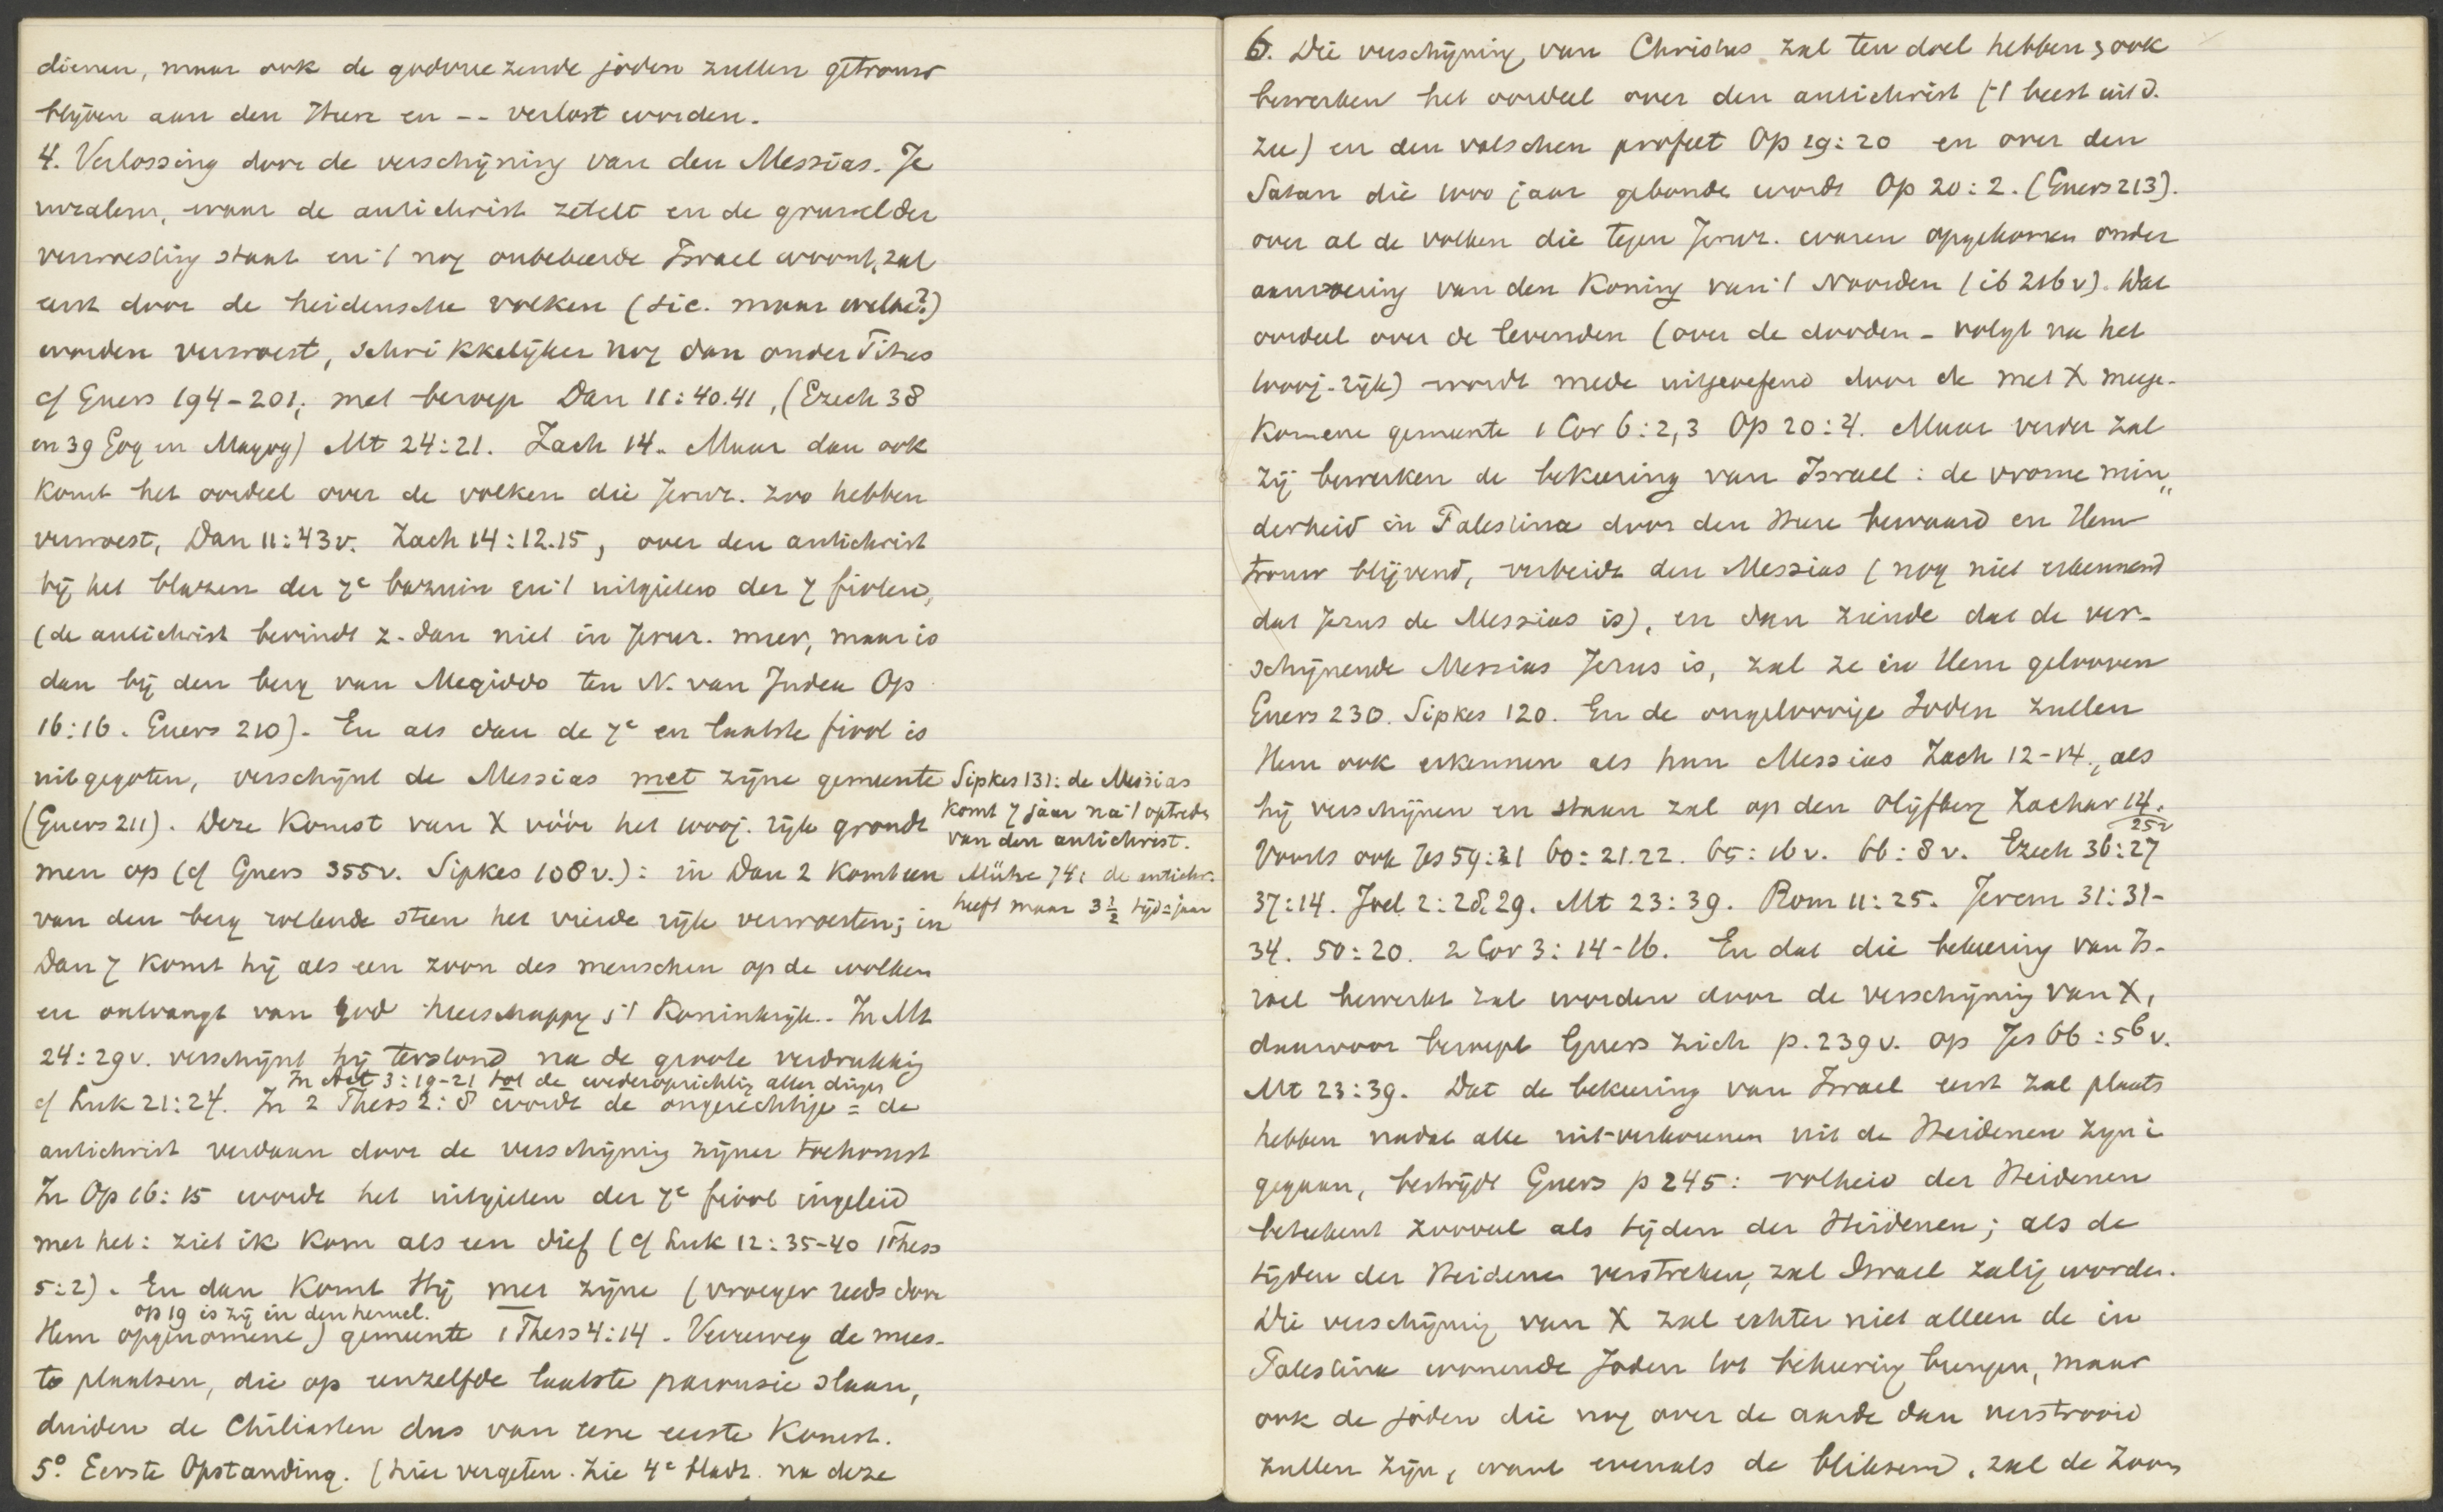 dienen, maar ook de godvreezende joden zullen getrouw
blijven aan den Heere en -- verlost worden.
4. Verlossing door de verschijning van den Messias. Je
ruzalem, waar de antichrist zetelt en de gruwel der
verwoesting staat en 't nog onbekeerde Israel woont, zal
eerst door de heidensche volken (sic. maar welke?)
worden verwoest, schrikkelijker nog dan onder Titus
cf Guers 194-201, met beroep Dan 11:40.41, (Ezech 38
en 39 Gog en Magog) Mt 24:21. Zach 14. Maar dan ook
komt het oordeel over de volken die Jeruz. zoo hebben
verwoest, Dan 11:43v. Zach 14:12.15, over den antichrist
bij het blazen der 7e bazuin en 't uitgieten der 7 fiolen,
(de antichrist bevindt z. dan niet in Jeruz. meer, maar is
dan bij den berg van Megiddo ten N. van Judea Op
16:16. Guers 210). En als dan de 7e en laatste fiool is
uitgegoten, verschijnt de Messias met zijne gemeente
(Guers 211). Deze komst van X vóór het 1000j. rijk grondt
men op (cf Guers 355v. Sipkes 108v.): in Dan 2 komt een
van den berg rollende steen het vierde rijk verwoesten; in
Dan 7 komt hij als een zoon des menschen op de wolken
en ontvangt van God heerschappij & 't Koninkrijk. In Mt
24:29v. verschijnt hij terstond na de groote verdrukking
In Act 3:19-21 tot de wederoprichting aller dingen
cf Luk 21:24. In 2 Thess 2:8 wordt de ongerechtige = de
antichrist verdaan door de verschijning zijner toekomst
In Op 16:15 wordt het uitgieten der 7e fiool ingeleid
met het: ziet ik kom als een dief (cf Luk 12:35-40 1Thess
5:2). En dan komt Hij met zijne (vroeger reeds door
op 19 is zij in den hemel.
Hem opgenomene) gemeente 1 Thess 4:14. Verreweg de mees-
te plaatsen, die op eenzelfde laatste parousie slaan,
duiden de Chiliasten dus van eene eerste komst.
5°. Eerste Opstanding. (hier vergeten. Zie 4e bladz. na deze
Sipkes 131: de Messias
komt 7 jaar na 't optreden
van den antichrist.
741 de antichr.
heeft maar 3 1/2 tijd = jaar
6. Die verschijning van Christus zal ten doel hebben & ook
bewerken het oordeel over den antichrist ('t beest uit d.
zee) en den valschen profeet Op 19:20 en over den
Satan die 1000 jaar gebonden wordt Op 20:2. (Guers 213).
over al de volken die tegen Jeruz. waren opgekomen onder
aanvoering van den Koning van 't Noorden (ib 216v). Dat
oordeel over de levenden (over de dooden - volgt na het
1000j. rijk) wordt mede uitgeoefend door de met X meege-
komene gemeente 1 Cor 6:2,3 Op 20:4. Maar verder zal
zij bewerken de bekeering van Israel: de vrome min„
derheid in Palestina door den Heere bewaard en Hem
trouw blijvend, verbeidt den Messias (nog niet erkennend
dat Jezus de Messias is), en dan ziende dat de ver-
schijnende Messias Jezus is, zal ze in Hem gelooven
Guers 230. Sipkes 120. En de ongeloovige Joden zullen
Hem ook erkennen als hun Messias Zach 12-14, als
hij verschijnen en staan zal op den Olijfberg Zachar 14.
25v
Voorts ook Jes 59:21 60:21.22. 65:16v. 66:8v. Ezech 36:27
37:14. Joel 2:28.29. Mt 23:39. Rom 11:25. Jerem 31:31-
34. 50:20. 2 Cor 3:14-16. En dat die bekeering van Is-
rael bewerkt zal worden door de verschijning van X,
daarvoor beroept Guers zich p.239v. op Jes 66:5b v.
Mt 23:39. Dat de bekeering van Israel eerst zal plaats
hebben nadat alle uit-verkorenen uit de Heidenen zijn i
gegaan, bestrijdt Guers p 245: volheid der Heidenen
beteekent zooveel als tijden der Heidenen; als de
tijden der Heidenen verstreken, zal Israel zalig worden.
Die verschijning van X zal echter niet alleen de in
Palestina wonende Joden tot bekeering brengen, maar
ook de joden die nog over de aarde dan verstrooid
zullen zijn, want evenals de bliksem, zal de Zoon